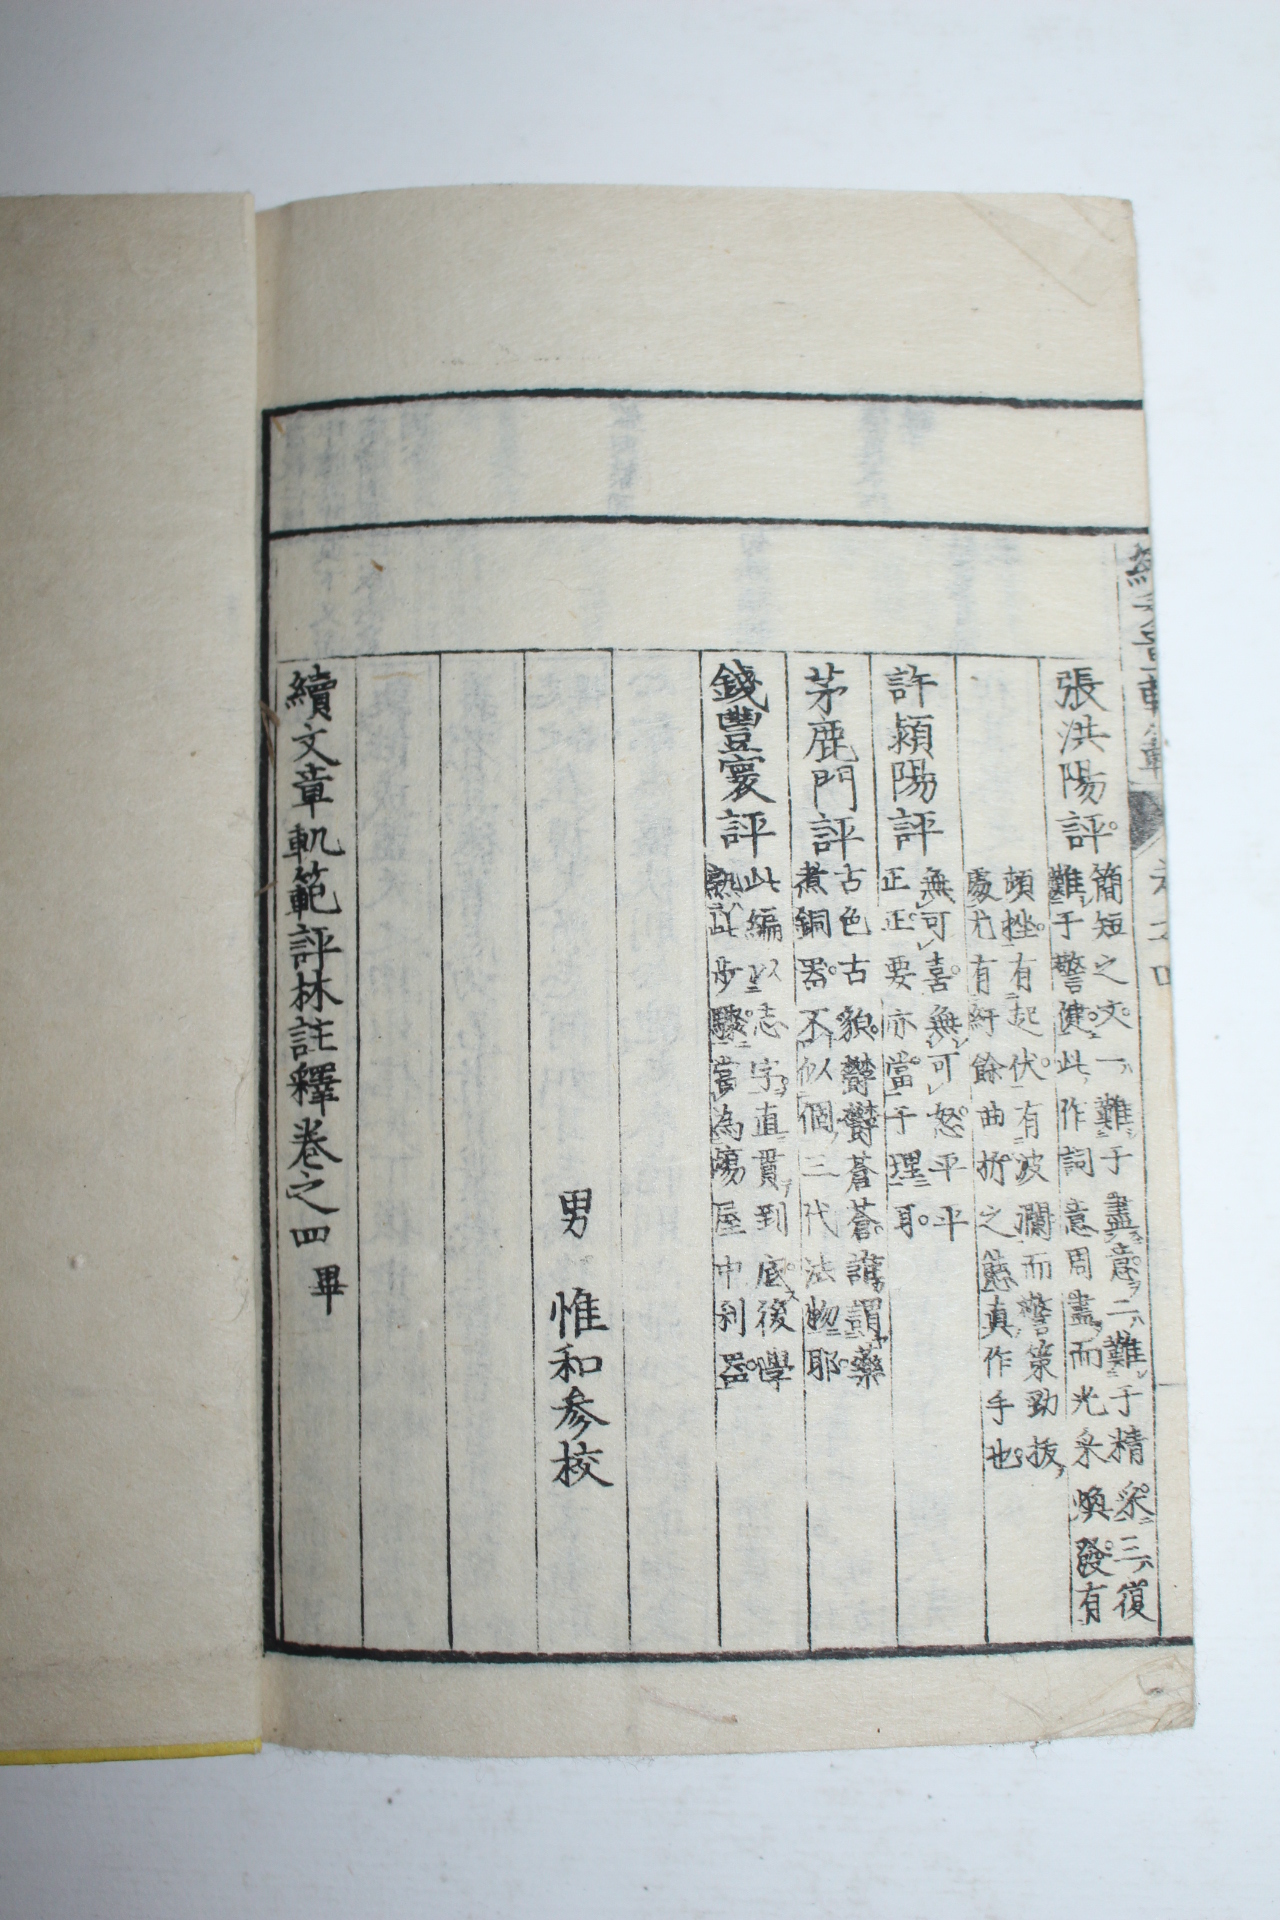 張洪陽評 簡短之文一難于盡意二難于精采三復
難于警健此作詞意周盡而光采煥發有
頓挫有起伏有波瀾而警策勁拔
處尤有紆餘曲折之態真作手也
許潁陽評 無可喜無可怒平平
正正要亦當于理耳
茅鹿門評 古色古貌鬱鬱蒼蒼謂藥
煮銅器不似個三代法物耶
錢豐寰評 此編以志字直貫到底後學
熟此步驟當為場屋中利器
男 惟和參校
續文章軌範評林註釋卷之四 畢